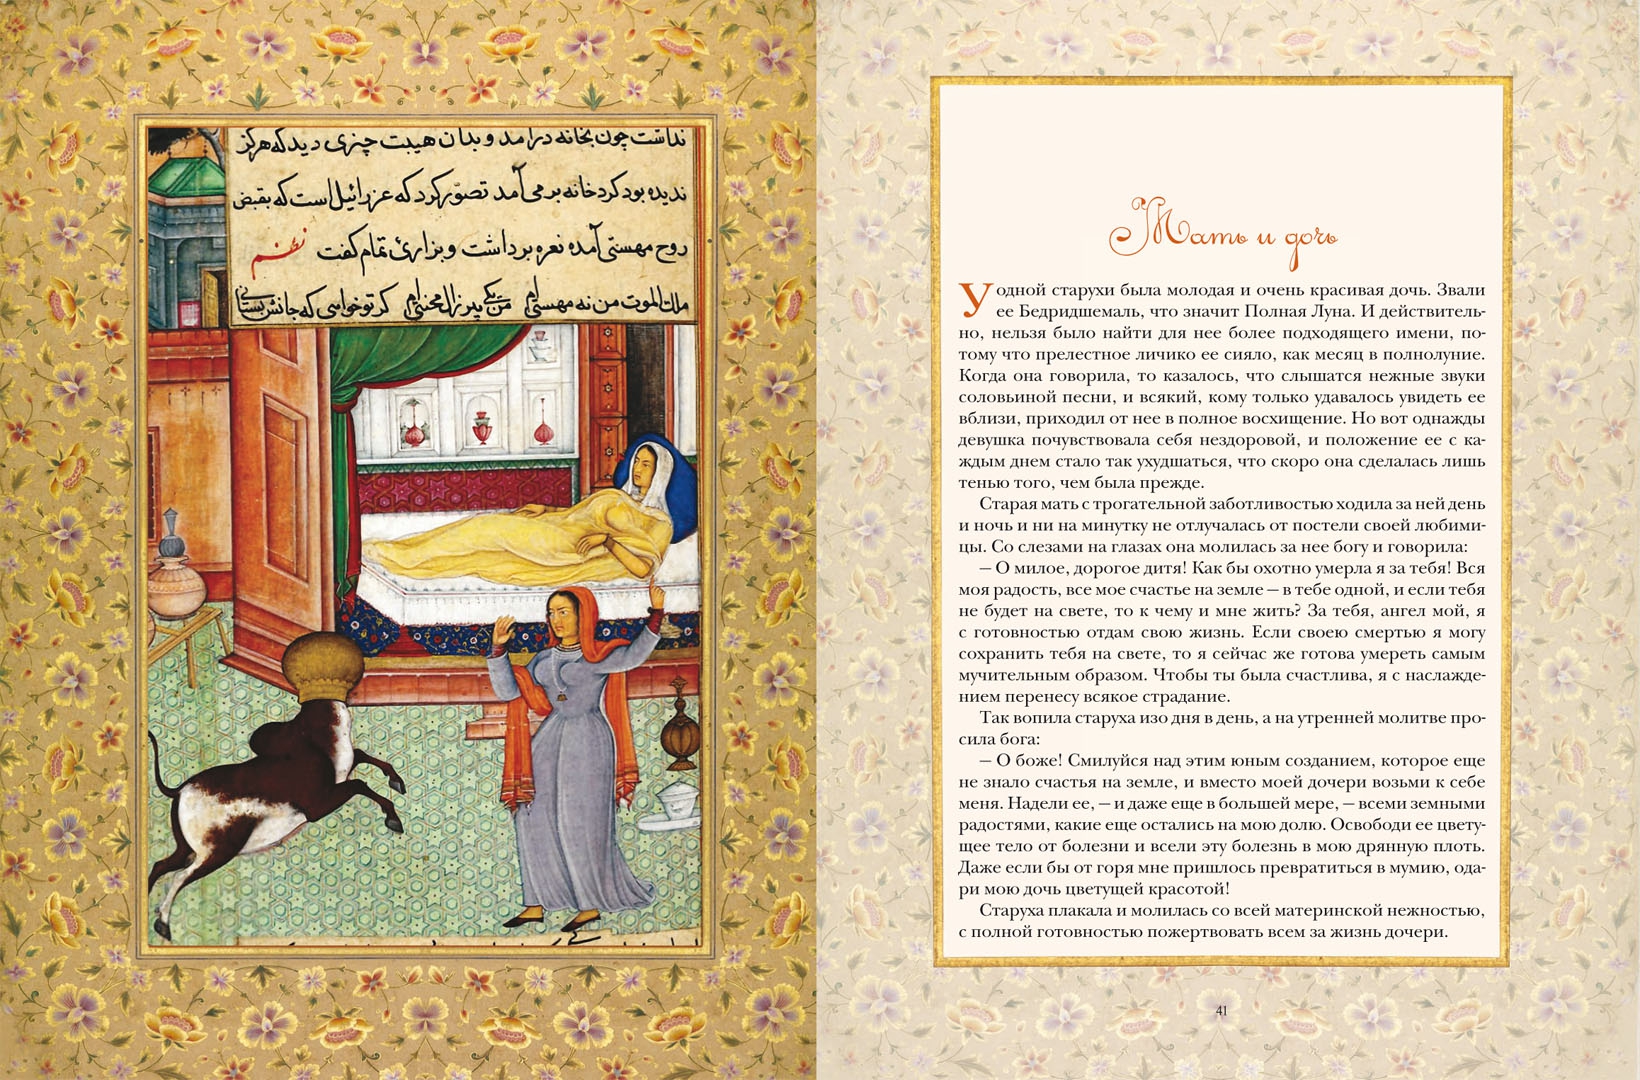 نداشت چون بخانه درآمد و بدان هیبت چیزی دید که هرگز
ندیده بود کرد خانه بر می آمد تصوّر کرد که عزرائیل است که بقبض
روح مهستی آمده نعره برداشت و بزاریٔ تمام گفت نظم
ملك الموت من نه مهستی ام من یکی پیر زال محنتی ام کر تو خواسی که جانش بستانی
Мать и дочь
У одной старухи была молодая и очень красивая дочь. Звали
ее Бедридшемаль, что значит Полная Луна. И действитель-
но, нельзя было найти для нее более подходящего имени, по-
тому что прелестное личико ее сияло, как месяц в полнолуние.
Когда она говорила, то казалось, что слышатся нежные звуки
соловьиной песни, и всякий, кому только удавалось увидеть ее
вблизи, приходил от нее в полное восхищение. Но вот однажды
девушка почувствовала себя нездоровой, и положение ее с ка-
ждым днем стало так ухудшаться, что скоро она сделалась лишь
тенью того, чем была прежде.
Старая мать с трогательной заботливостью ходила за ней день
и ночь и ни на минутку не отлучалась от постели своей любими-
цы. Со слезами на глазах она молилась за нее богу и говорила:
– О милое, дорогое дитя! Как бы охотно умерла я за тебя! Вся
моя радость, все мое счастье на земле – в тебе одной, и если тебя
не будет на свете, то к чему и мне жить? За тебя, ангел мой, я
с готовностью отдам свою жизнь. Если своею смертью я могу
сохранить тебя на свете, то я сейчас же готова умереть самым
мучительным образом. Чтобы ты была счастлива, я с наслажде-
нием перенесу всякое страдание.
Так вопила старуха изо дня в день, а на утренней молитве про-
сила бога:
– О боже! Смилуйся над этим юным созданием, которое еще
не знало счастья на земле, и вместо моей дочери возьми к себе
меня. Надели ее, – и даже еще в большей мере, – всеми земными
радостями, какие еще остались на мою долю. Освободи ее цвету-
щее тело от болезни и всели эту болезнь в мою дрянную плоть.
Даже если бы от горя мне пришлось превратиться в мумию, ода-
ри мою дочь цветущей красотой!
Старуха плакала и молилась со всей материнской нежностью,
с полной готовностью пожертвовать всем за жизнь дочери.
41